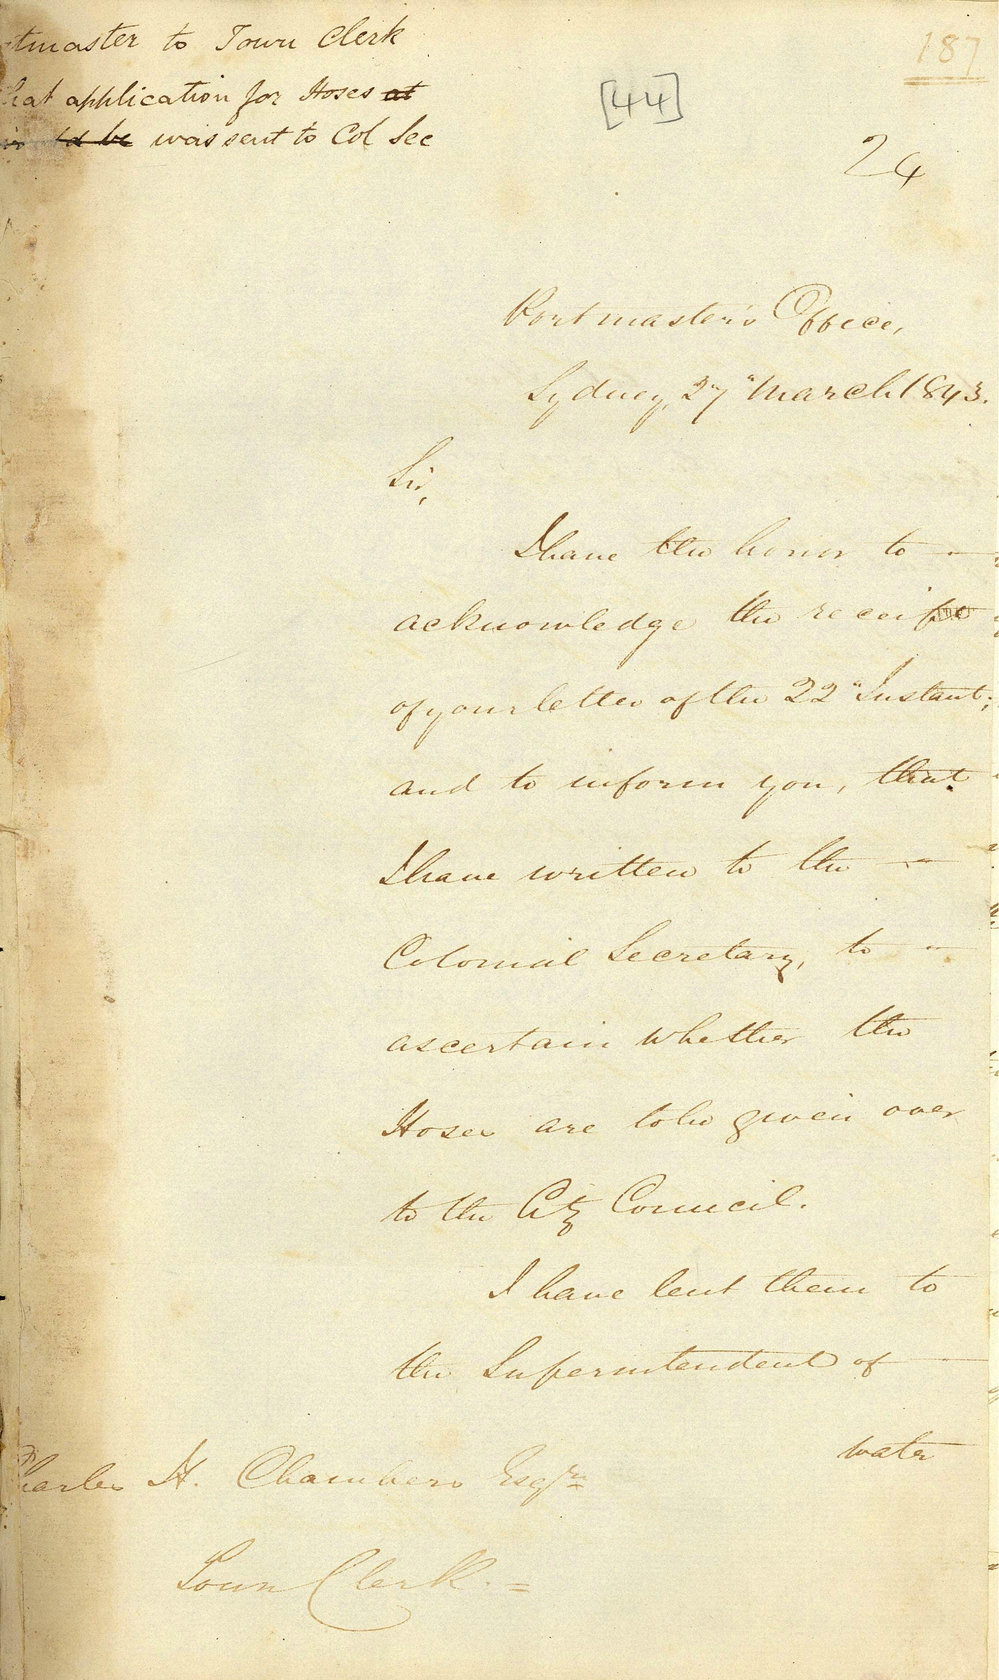 tmaster to Town Clerk
hat application for Hoses at
be was sent to Col Sec
187
[44]
24
Port master's Office,
Sydney, 27" March 1843.
Sir,
I have the honor to
acknowledge the receipt
of your letter of the 22" Instant;
and to inform you, that
I have written to the
Colonial Secretary, to
ascertain whether the
Hoses are to be given over
to the City Council.
I have lent them to
the Superintendent of
water
Charles H. Chambers Esqre
Town Clerk. =